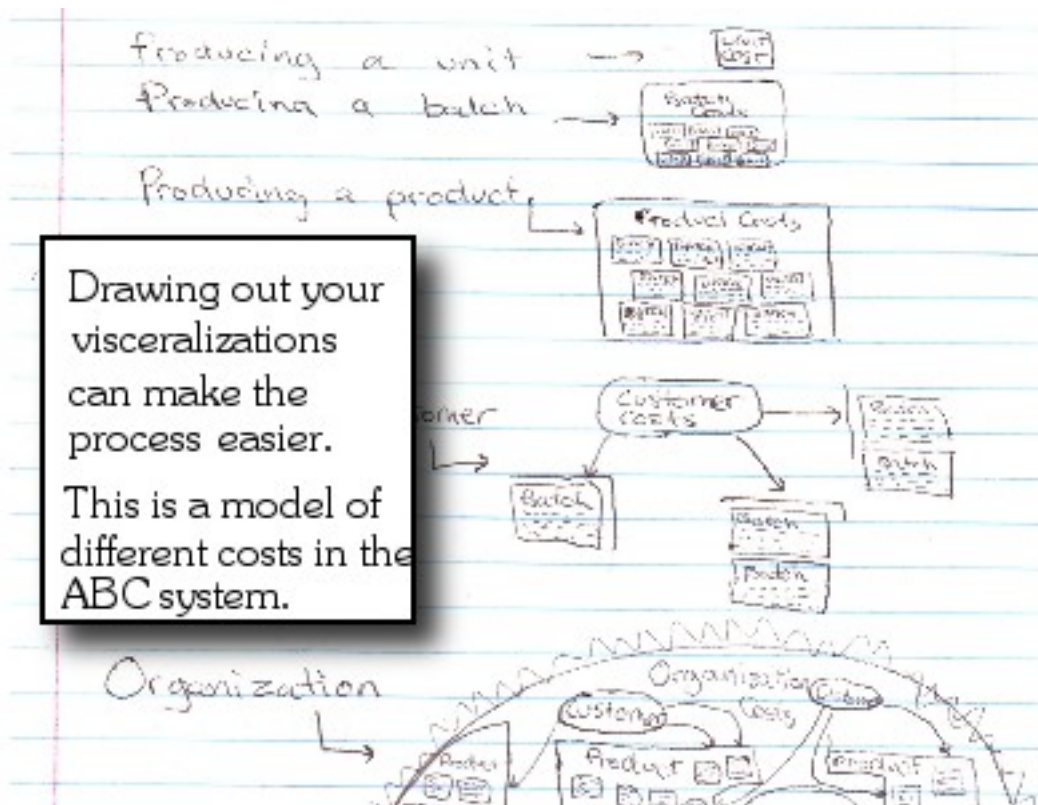 Producing a unit
unit
cost
Producing a batch
Batch
Costs
Producing a product
Product Costs
Drawing out your
visceralizations
can make the
process easier.
This is a model of
different costs in the
ABC system.
tomer
Customer
costs
Batch
Batch
Batch
Batch
Batch
Organization
Organization
Costs
Customer
Product
Product
Product